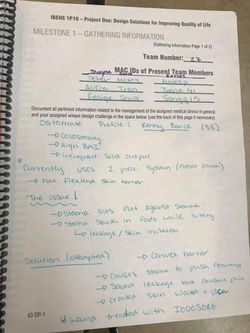 IBEHS 1P10 – Project One: Design Solutions for Improving Quality of Life
MILESTONE 1 – GATHERING INFORMATION
(Gathering Information Page 1 of 2)
Team Number: 27
MAC IDs of Present Team Members
Document all pertinent information related to the management of the assigned medical device in general
and your assigned unique design challenge in the space below (use the back of this page if necessary)
Ostomate Profile: Kenny
→ Colostomy
→ High BMI
→ infrequent solid output
Currently uses 2 piece system
→ Flat Flextend skin barrier
The issue ↓
→ stoma sits flat against stomach
→ stoma stuck in folds while sitting
↳ leakage / skin irritation
Solution (attempted) → Convex barrier
→ causes stoma to push forward
→ solved leakage but caused pain
→ created skin wound + ulcer
* wound treated with IODOSORB
43 DP-1